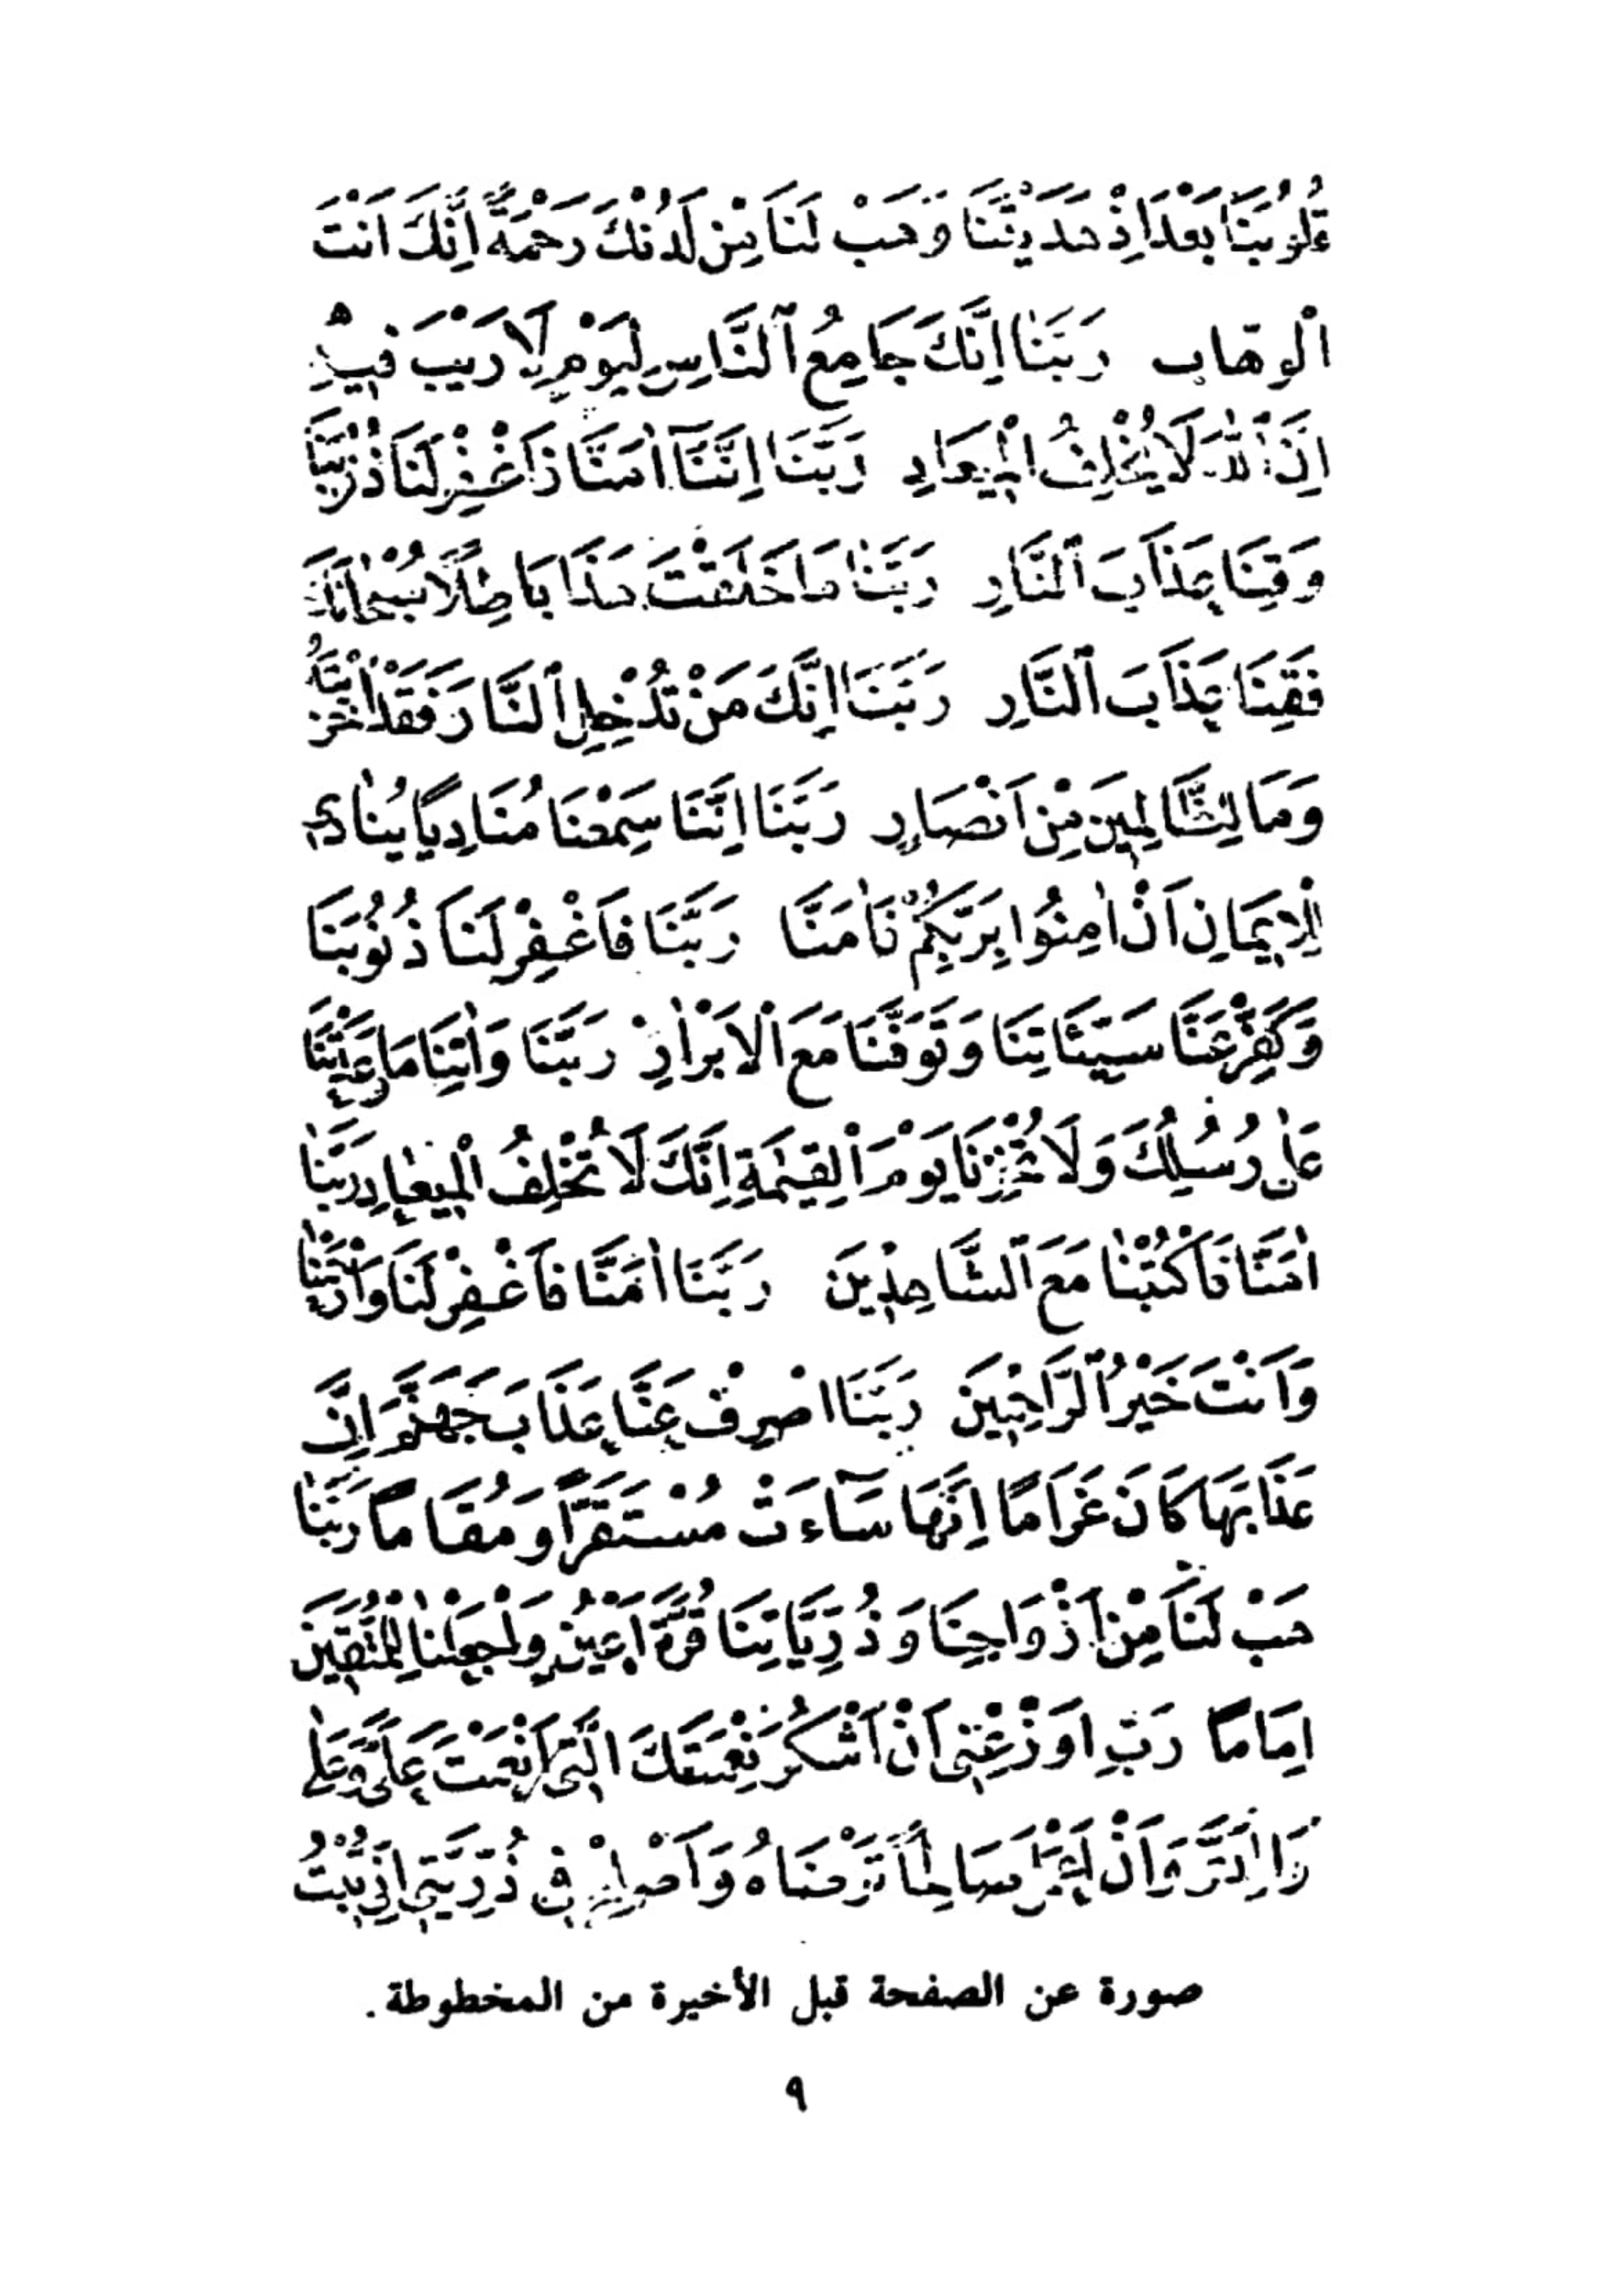 قُلُوبَنَا بَعْدَ اِذْ هَدَيْتَنَا وَهَبْ لَنَا مِنْ لَدُنْكَ رَحْمَةً اِنَّكَ اَنْتَ
الْوهّاب رَبَّنٰا اِنَّكَ جَامِعُ ٱلنَّاسِ لِيَوْمٍ لَا رَيْبَ فِيهِ
اِنَّ ٱللّٰهَ لَا يُخْلِفُ الْمِيعَادِ رَبَّنَا اِنَّنَآ اٰمَنَّا فَاغْفِرْ لَنَا ذُنُوبَنَا
وَقِنَا عَذَابَ ٱلنَّارِ رَبَّنٰا مَا خَلَقْتَ هَذَا بَاطِلًا سُبْحٰانَكَ
فَقِنَا عَذَابَ ٱلنَّارِ رَبَّنَا اِنَّكَ مَنْ تُدْخِلِ ٱلنَّارَ فَقَدْ اَخْزَيْتَهُ
وَمَا لِلظَّالِمِينَ مِنْ اَنْصَارٍ رَبَّنَا اِنَّنَا سَمِعْنَا مُنَادِيًا يُنٰادِي
لِلْاِيمَانِ اَنْ اٰمِنُوا بِرَبِّكُمْ فَاٰمَنَّا رَبَّنَا فَاغْفِرْ لَنَا ذُنُوبَنَا
وَكَفِّرْ عَنَّا سَيِّئَاتِنَا وَتَوَفَّنَا مَعَ الْاَبْرٰارِ رَبَّنَا وَاٰتِنَا مَا وَعَدْتَنَا
عَلٰى رُسُلِكَ وَلَا تُخْزِنَا يَوْمَ الْقِيٰمَةِ اِنَّكَ لَا تُخْلِفُ الْمِيعٰادِ رَبَّنٰا
اٰمَنَّا فَاكْتُبْنٰا مَعَ ٱلشَّاهِدِينَ رَبَّنَا اٰمَنَّا فَاغْفِرْ لَنَا وَارْحَمْنٰا
وَاَنْتَ خَيْرُ ٱلرَّاحِمِينَ رَبَّنَا اصْرِفْ عَنَّا عَذَابَ جَهَنَّمَ اِنَّ
عَذَابَهَا كَانَ غَرَامًا اِنَّهَا سَآءَتْ مُسْتَقَرًّا وَمُقَامًا رَبَّنٰا
هَبْ لَنَا مِنْ اَزْوَاجِنَا وَذُرِّيَّاتِنَا قُرَّةَ اَعْيُنٍ وَاجْعَلْنٰا لِلْمُتَّقِينَ
اِمَامًا رَبِّ اَوْزِعْنِى اَنْ اَشْكُرَ نِعْمَتَكَ الَّتِى اَنْعَمْتَ عَلَىَّ وَعَلٰى
وَالِدَىَّ وَاَنْ اَعْمَلَ صَالِحًا تَرْضَاهُ وَاَصْلِحْ لِى فِى ذُرِّيَّتِى اِنِّى تُبْتُ
صورة عن الصفحة قبل الأخيرة من المخطوطة.
٩